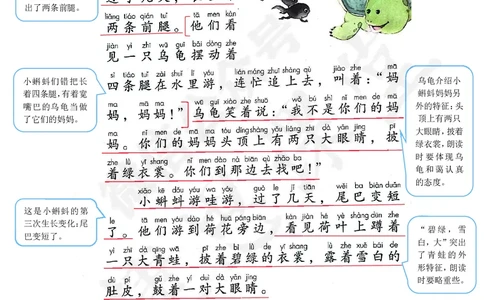 出了两条前腿。
liǎng tiáo qián tuǐ tā men kàn
两条前腿。他们看
jiàn yì zhī wū guī bǎi dòng zhe
见一只乌龟摆动着
sì tiáo tuǐ zài shuǐ lǐ yóu lián máng zhuī shàng qù jiào zhe mā
四条腿在水里游，连忙追上去，叫着：“妈
ma mā ma wū guī xiào zhe shuō wǒ bú shì nǐ men de mā
妈，妈妈！”乌龟笑着说：“我不是你们的妈
ma nǐ men de mā ma tóu dǐng shàng yǒu liǎng zhī dà yǎn jing pī
妈。你们的妈妈头顶上有两只大眼睛，披
zhe lǜ yī shang nǐ men dào nà biān qù zhǎo ba
着绿衣裳。你们到那边去找吧！”
xiǎo kē dǒu yóu wa yóu guò le jǐ tiān wěi ba biàn duǎn
小蝌蚪游哇游，过了几天，尾巴变短
le tā men yóu dào hé huā páng biān kàn jiàn hé yè shàng dūn zhe
了。他们游到荷花旁边，看见荷叶上蹲着
yì zhī dà qīng wā pī zhe bì lǜ de yī shang lù zhe xuě bái de
一只大青蛙，披着碧绿的衣裳，露着雪白的
dù pí gǔ zhe yí duì dà yǎn jing
肚皮，鼓着一对大眼睛。
小蝌蚪们错把长
着四条腿，有着宽
嘴巴的乌龟当做
了它们的妈妈。
这是小蝌蚪的第
三次生长变化：尾
巴变短了。
乌龟介绍小
蝌蚪妈妈另
外的特征：头
顶上有两只
大眼睛，披着
绿衣裳，朗读
时要体现乌
龟和蔼认真
的态度。
“碧绿，雪
白，大”突出
了青蛙的外
形特征，朗读
时要略重些。